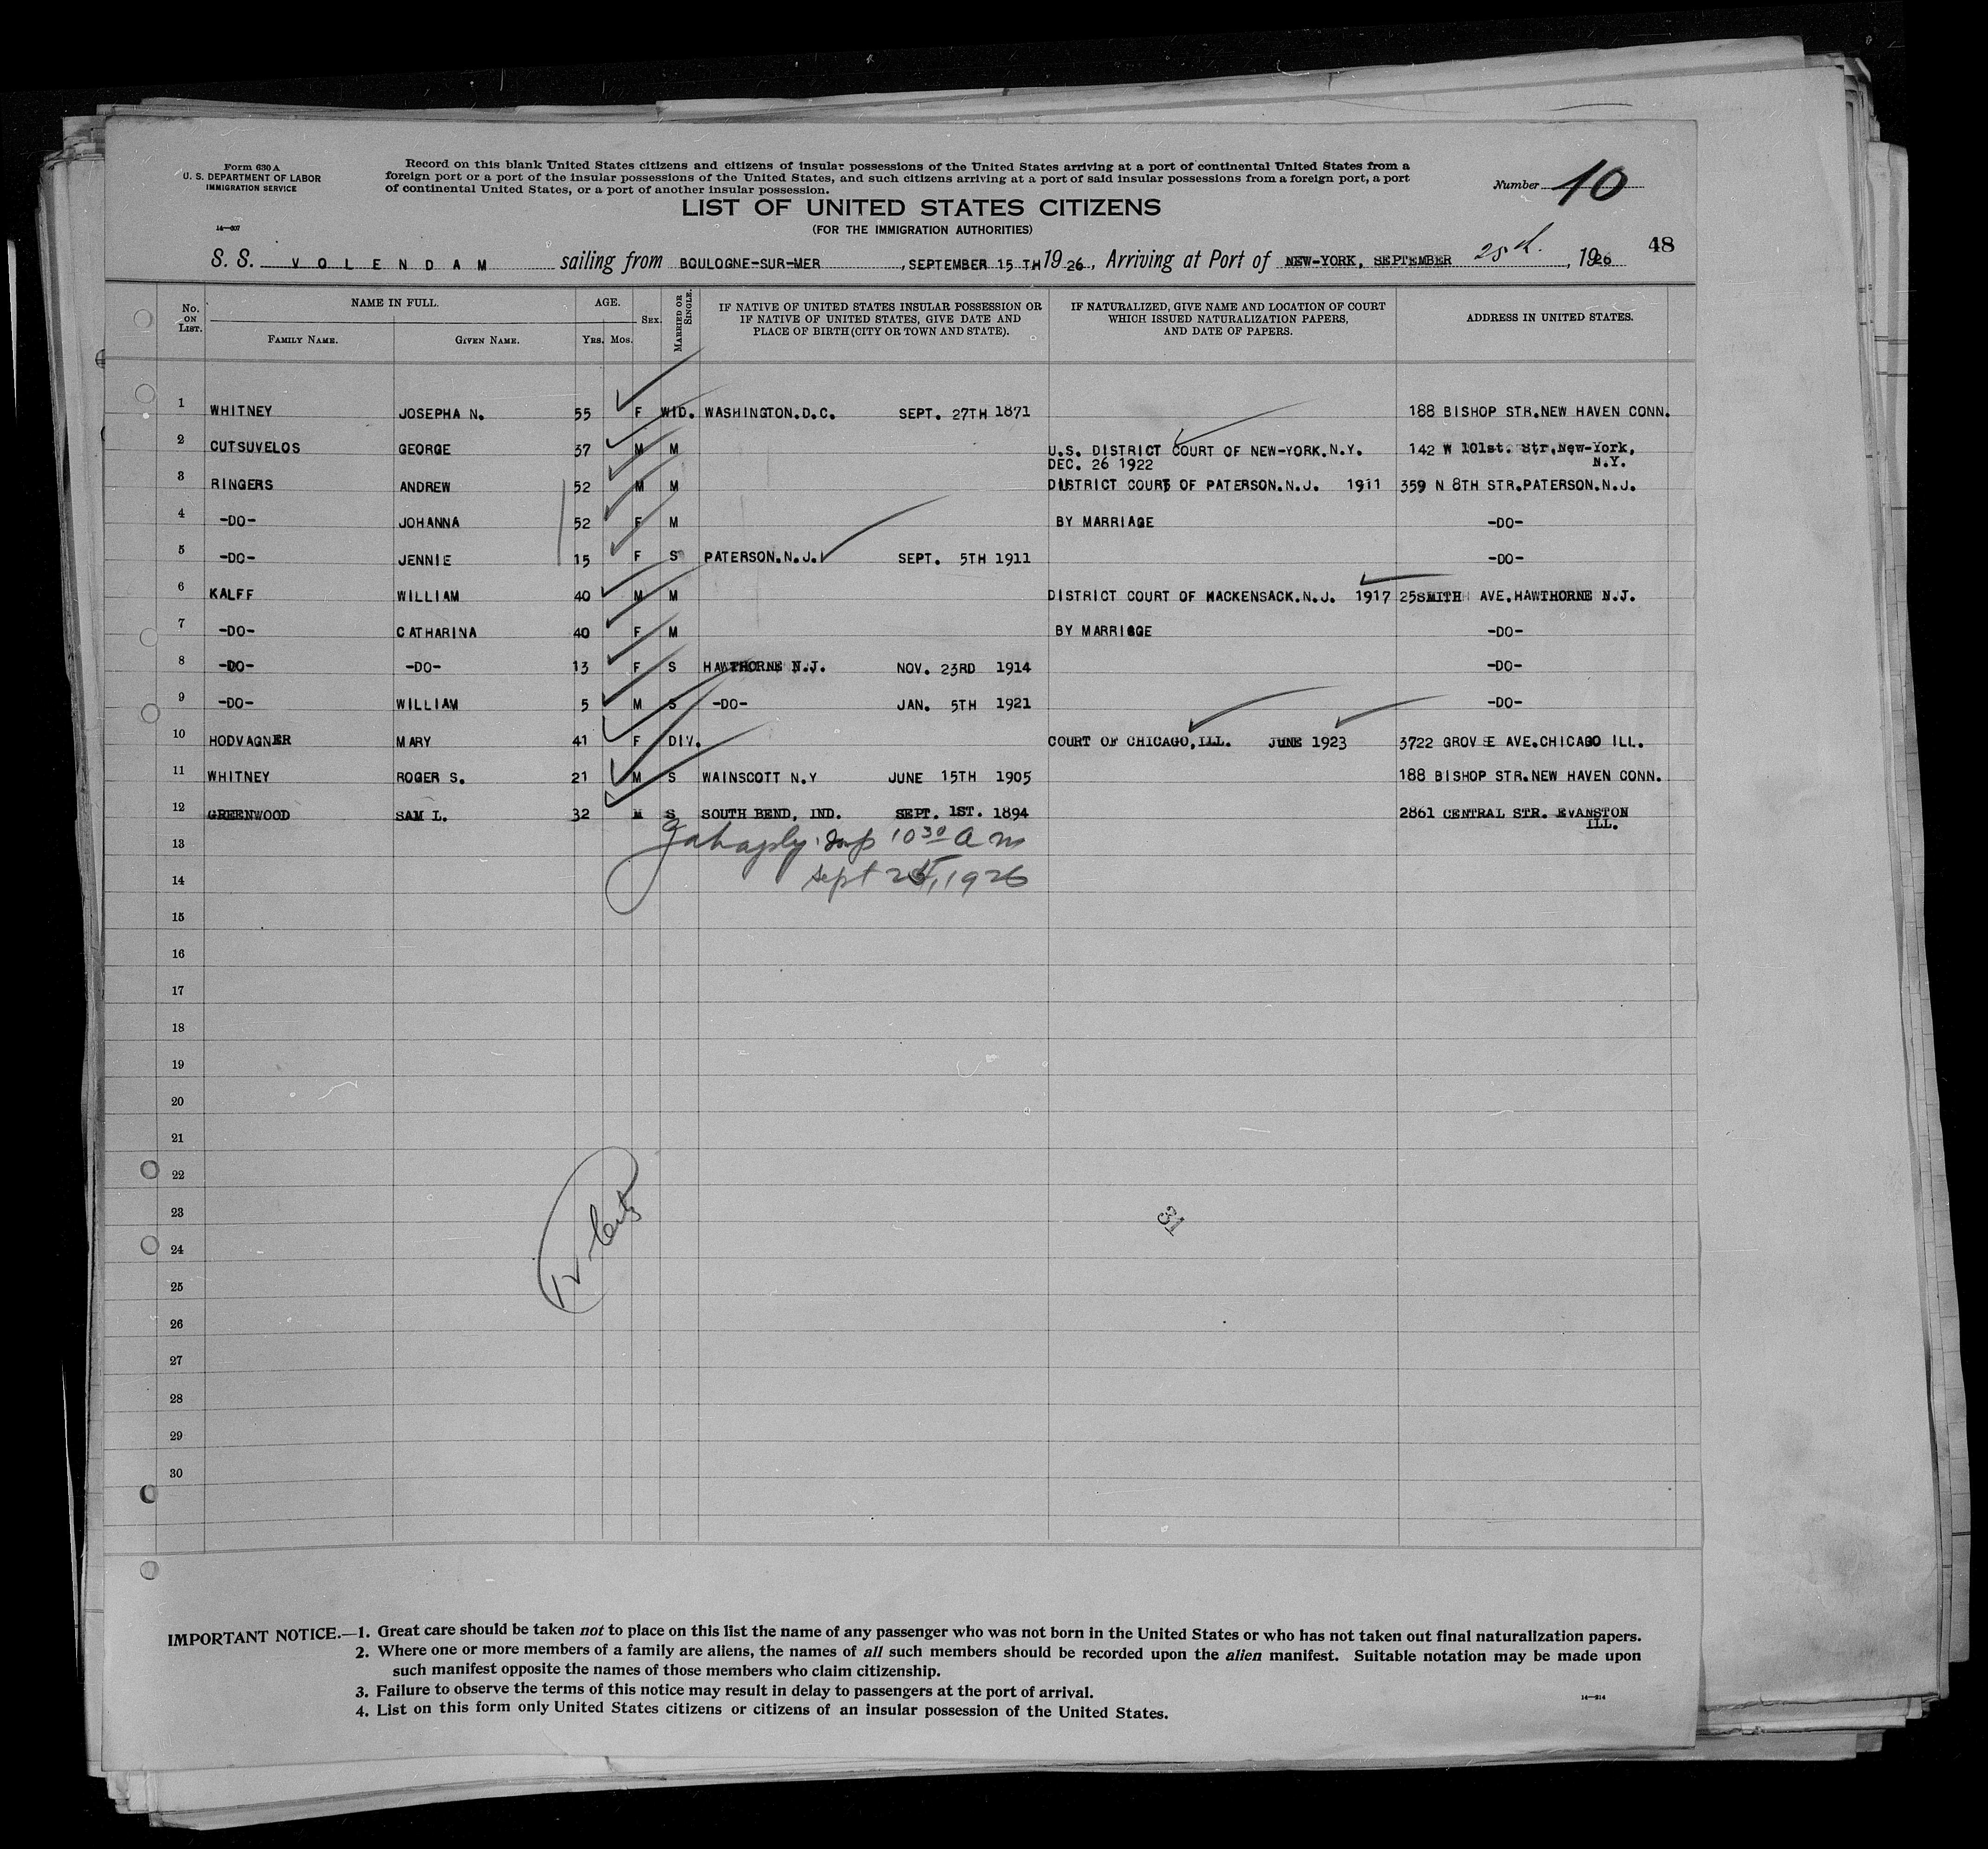 Form 630 A
U. S. DEPARTMENT OF LABOR
IMMIGRATION SERVICE
14—607
Record on this blank United States citizens and citizens of insular possessions of the United States arriving at a port of continental United States from a
foreign port or a port of the insular possessions of the United States, and such citizens arriving at a port of said insular possessions from a foreign port, a port
of continental United States, or a port of another insular possession.
Number 10
LIST OF UNITED STATES CITIZENS
(FOR THE IMMIGRATION AUTHORITIES)
48
S. S. VOLENDAM sailing from BOULOGNE-SUR-MER, SEPTEMBER 15 TH 1926, Arriving at Port of NEW-YORK, SEPTEMBER 1926
No. ON LIST. NAME IN FULL. FAMILY NAME. GIVEN NAME. AGE. YRS. MOS. SEX. MARRIED OR SINGLE. IF NATIVE OF UNITED STATES INSULAR POSSESSION OR IF NATIVE OF UNITED STATES, GIVE DATE AND PLACE OF BIRTH (CITY OR TOWN AND STATE). IF NATURALIZED, GIVE NAME AND LOCATION OF COURT WHICH ISSUED NATURALIZATION PAPERS, AND DATE OF PAPERS. ADDRESS IN UNITED STATES.
1 WHITNEY JOSEPHA N. 55 F WID. WASHINGTON.D.C. SEPT. 27TH 1871 188 BISHOP STR.NEW HAVEN CONN.
2 CUTSUVELOS GEORGE 37 M M U.S. DISTRICT COURT OF NEW-YORK.N.Y. 142 W 101st. Str.New-York,
DEC. 26 1922 N.Y.
3 RINGERS ANDREW 52 M M DISTRICT COURT OF PATERSON.N.J. 1911 359 N 8TH STR.PATERSON.N.J.
4 -DO- JOHANNA 52 F M BY MARRIAGE -DO-
5 -DO- JENNIE 15 F S PATERSON.N.J. SEPT. 5TH 1911 -DO-
6 KALFF WILLIAM 40 M M DISTRICT COURT OF HACKENSACK.N.J. 1917 25SMITH AVE.HAWTHORNE N.J.
7 -DO- CATHARINA 40 F M BY MARRIAGE -DO-
8 -DO- -DO- 13 F S HAWTHORNE N.J. NOV. 23RD 1914 -DO-
9 -DO- WILLIAM 5 M S -DO- JAN. 5TH 1921 -DO-
10 HODVAGNER MARY 41 F DIV. COURT OF CHICAGO,ILL. JUNE 1923 3722 GROVE AVE.CHICAGO ILL.
11 WHITNEY ROGER S. 21 M S WAINSCOTT N.Y JUNE 15TH 1905 188 BISHOP STR.NEW HAVEN CONN.
12 GREENWOOD SAM L. 32 M S SOUTH BEND, IND. SEPT. 1ST. 1894 2861 CENTRAL STR. EVANSTON
ILL.
13 10 30 a m
14 Sept 1926
15
16
17
18
19
20
21
22
23
31
24
25
26
27
28
29
30
IMPORTANT NOTICE.—1. Great care should be taken not to place on this list the name of any passenger who was not born in the United States or who has not taken out final naturalization papers.
2. Where one or more members of a family are aliens, the names of all such members should be recorded upon the alien manifest. Suitable notation may be made upon
such manifest opposite the names of those members who claim citizenship.
3. Failure to observe the terms of this notice may result in delay to passengers at the port of arrival.
4. List on this form only United States citizens or citizens of an insular possession of the United States.
14—214